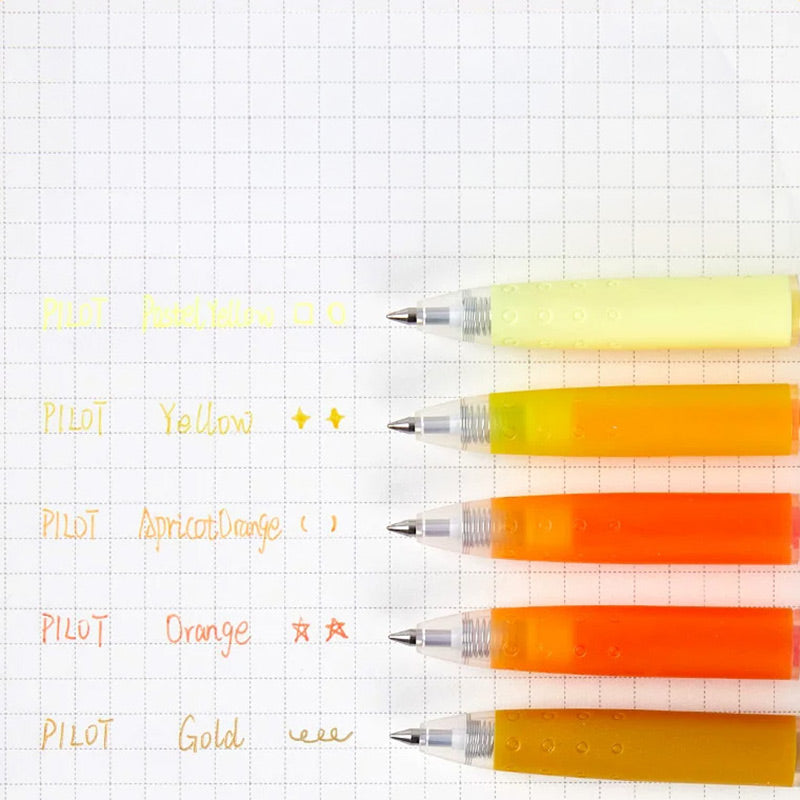 PILOT Pastel Yellow
PILOT Yellow
PILOT Apricot Orange
PILOT Orange
PILOT Gold